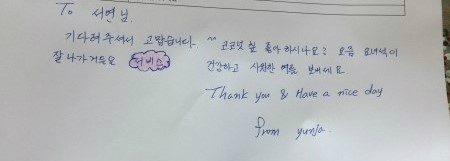 To 서연님
기다려주셔서 고맙습니다. ^^ 코코넛칩 좋아하시나요? 요즘 요녀석이
잘 나가거든요 서비스 건강하고 시원한 여름 보내세요.
Thank you & Have a nice day
from yunja.